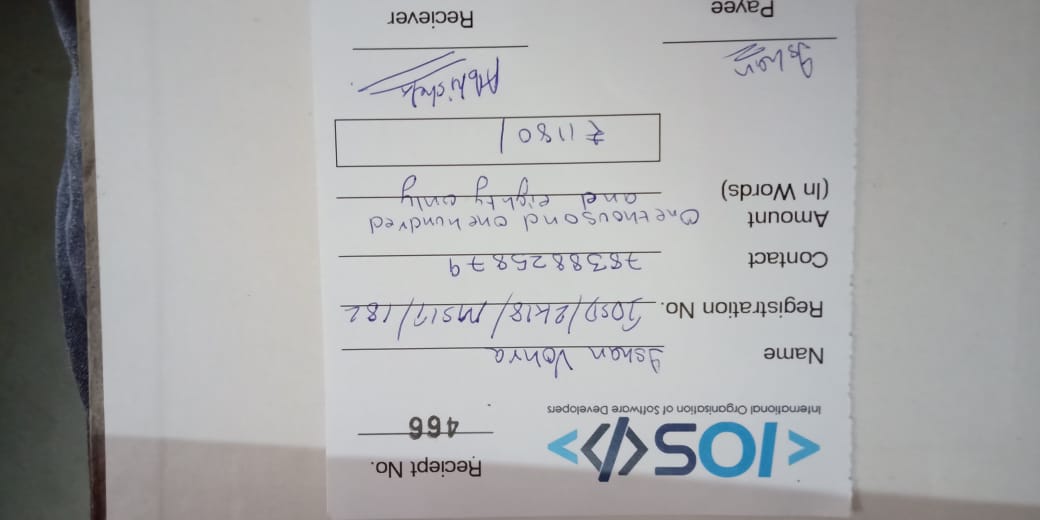 <IOSD>
International Organisation of Software Developers
Reciept No.
466
Name Ishan Vohra
Registration No. IOSD/2K18/MS17/182
Contact 7838825879
Amount One thousand one hundred
(In Words) and eighty only
₹1180/
Ishan
Abhishek
Payee
Reciever